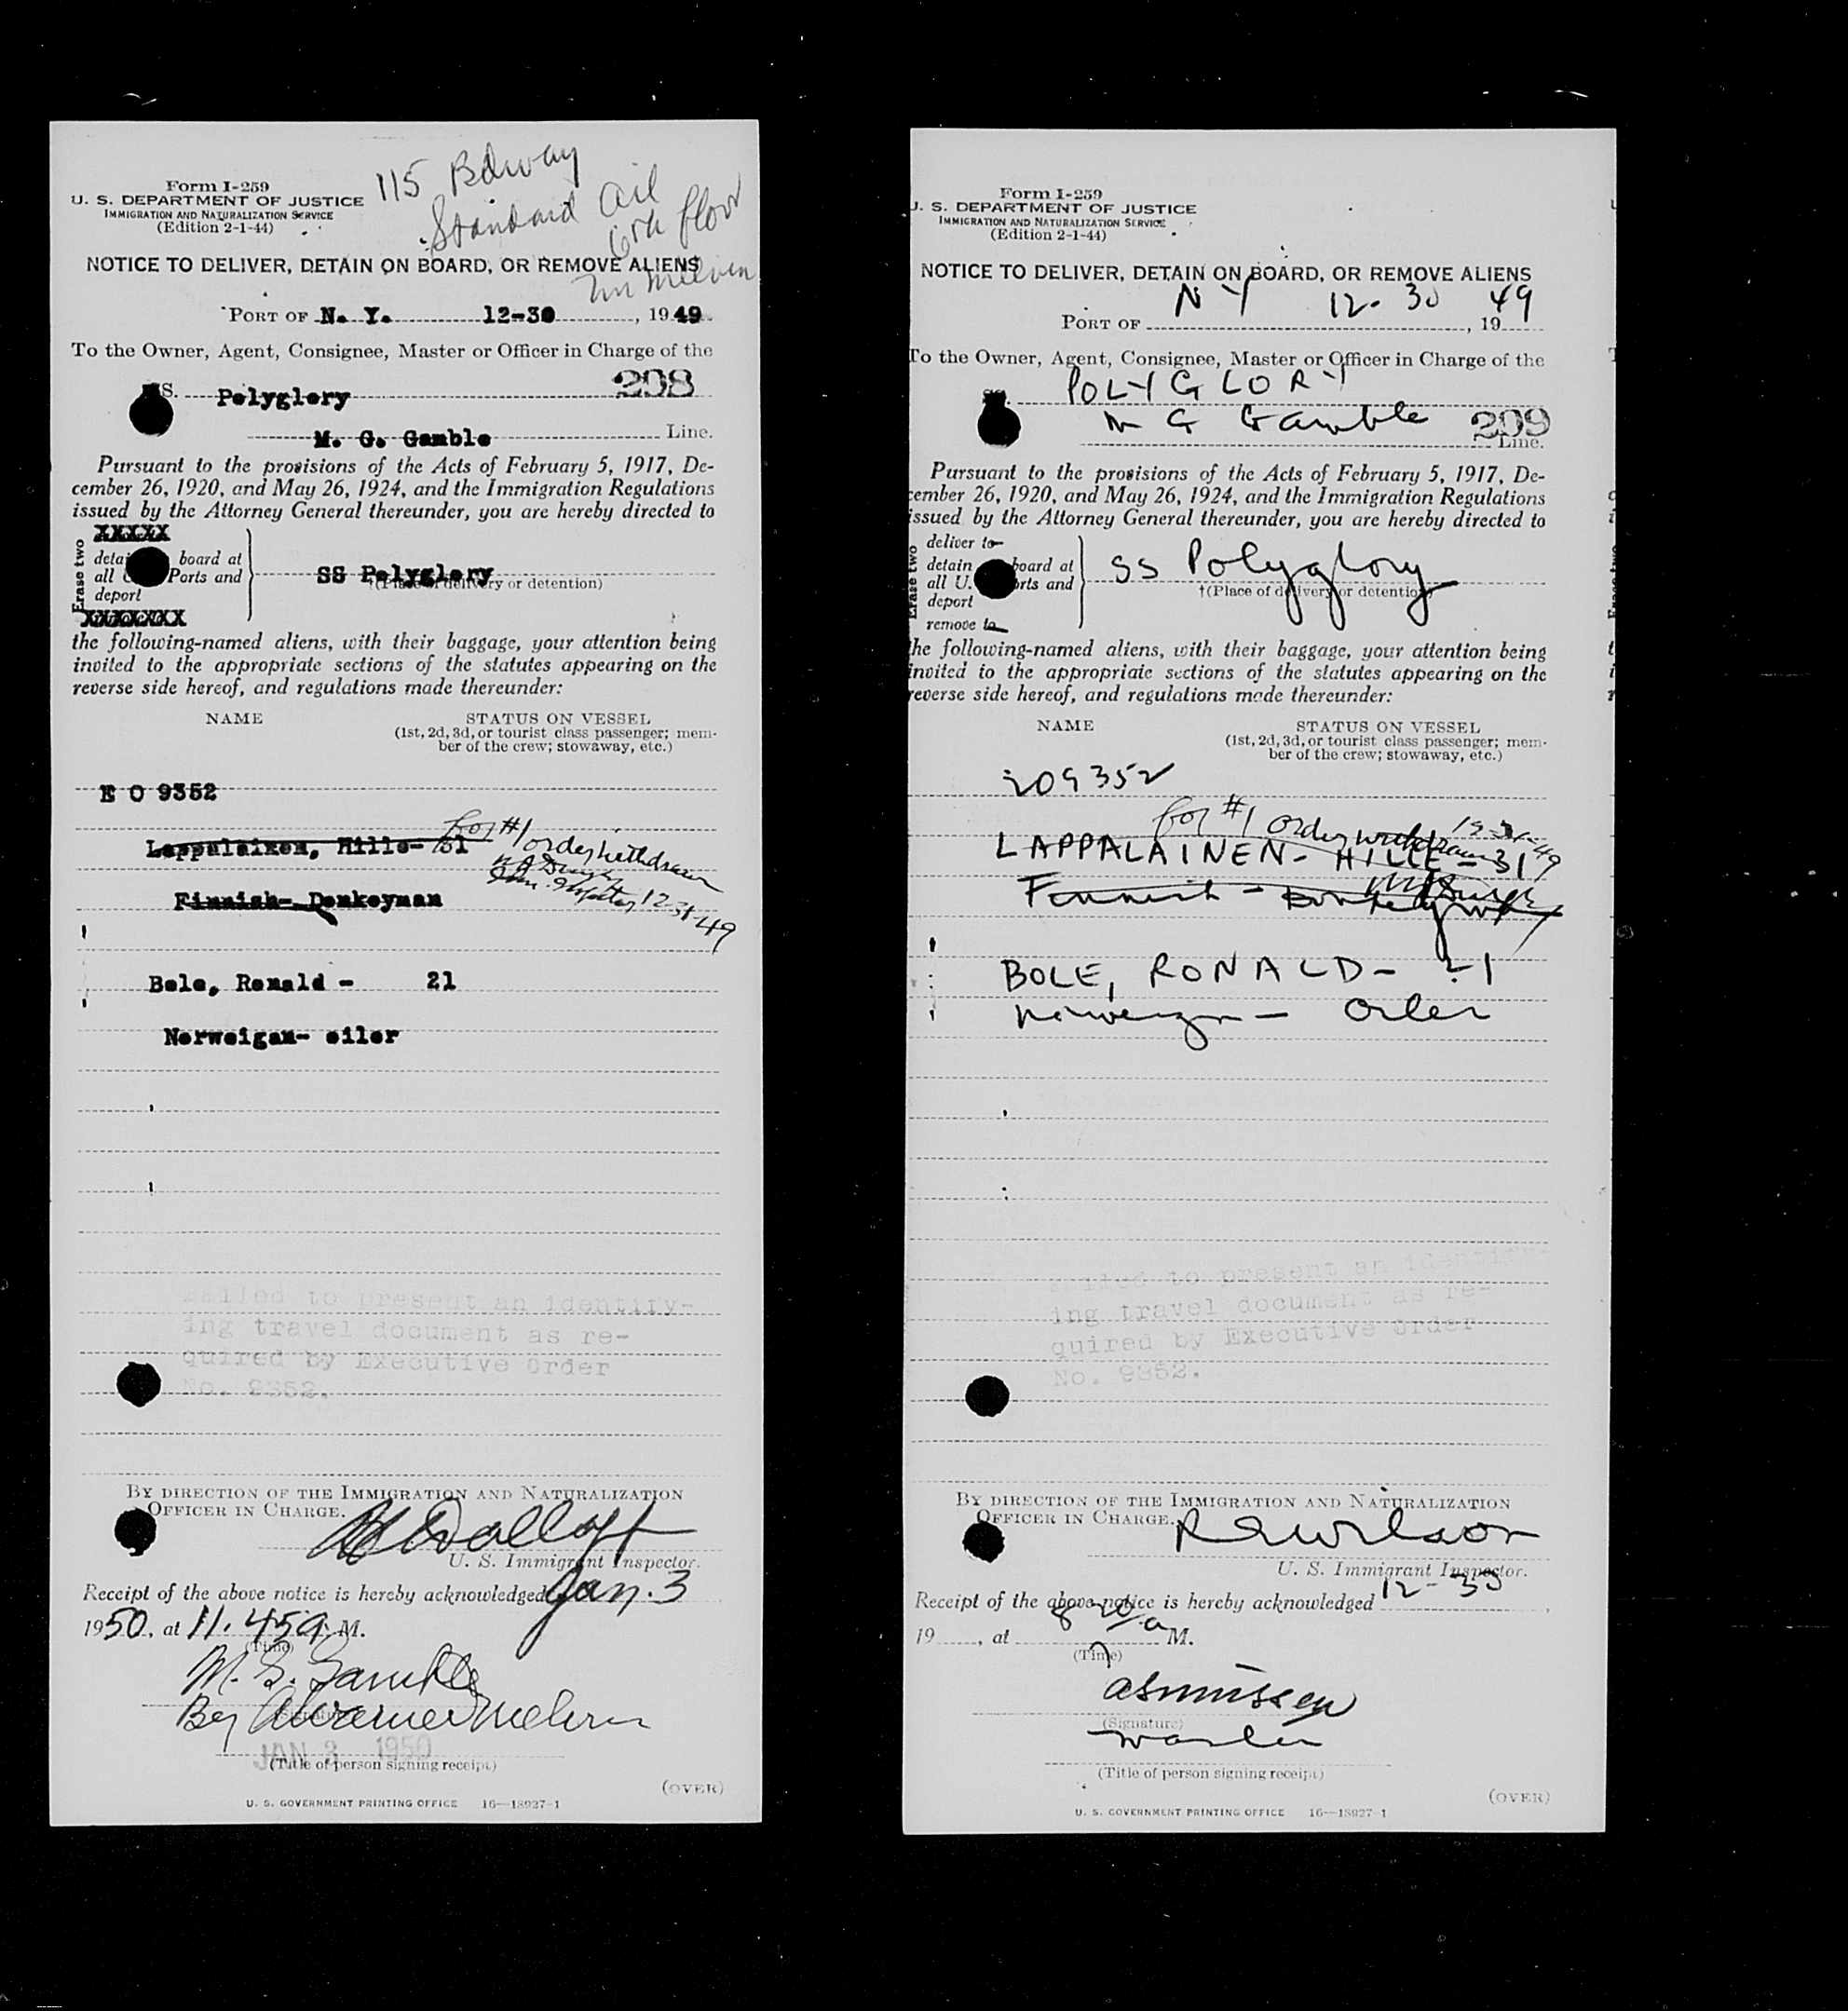 115 Bdway
Standard Oil
6th floor
Form I-259
U. S. DEPARTMENT OF JUSTICE
IMMIGRATION AND NATURALIZATION SERVICE
(Edition 2-1-44)
NOTICE TO DELIVER, DETAIN ON BOARD, OR REMOVE ALIENS
PORT OF N. Y. 12-30, 1949
To the Owner, Agent, Consignee, Master or Officer in Charge of the
SS. Polyglory 298
M. G. Gamble Line.
Pursuant to the provisions of the Acts of February 5, 1917, De-
cember 26, 1920, and May 26, 1924, and the Immigration Regulations
issued by the Attorney General thereunder, you are hereby directed to
Erase two
XXXXX
detain board at
all Ports and
deport
XXXXXXX
SS Polyglory
†(Place of delivery or detention)
the following-named aliens, with their baggage, your attention being
invited to the appropriate sections of the statutes appearing on the
reverse side hereof, and regulations made thereunder:
NAME STATUS ON VESSEL
(1st, 2d, 3d, or tourist class passenger; mem-
ber of the crew; stowaway, etc.)
E O 9352
Lappalainen, Hille- 31
for #1 order withdrawn
12-31-49
Finnish- Donkeyman
Bole, Ronald - 21
Norweigan- oiler
Failed to present an identify-
ing travel document as re-
quired by Executive Order
No. 9352.
BY DIRECTION OF THE IMMIGRATION AND NATURALIZATION
OFFICER IN CHARGE.
U. S. Immigrant Inspector.
Receipt of the above notice is hereby acknowledged Jan. 3
1950, at 11.45 a. M.
(Time)
M. G. Gamble
By
(Signature)
JAN 3 1950
(Title of person signing receipt)
(OVER)
U. S. GOVERNMENT PRINTING OFFICE 16—18927-1
Form I-259
U. S. DEPARTMENT OF JUSTICE
IMMIGRATION AND NATURALIZATION SERVICE
(Edition 2-1-44)
NOTICE TO DELIVER, DETAIN ON BOARD, OR REMOVE ALIENS
PORT OF N Y 12-30, 1949
To the Owner, Agent, Consignee, Master or Officer in Charge of the
SS. POLYGLORY
M G Gamble 299
Line.
Pursuant to the provisions of the Acts of February 5, 1917, De-
cember 26, 1920, and May 26, 1924, and the Immigration Regulations
issued by the Attorney General thereunder, you are hereby directed to
Erase two
deliver to
detain board at
all U. Ports and
deport
remove to
SS Polyglory
†(Place of delivery or detention)
the following-named aliens, with their baggage, your attention being
invited to the appropriate sections of the statutes appearing on the
reverse side hereof, and regulations made thereunder:
NAME STATUS ON VESSEL
(1st, 2d, 3d, or tourist class passenger; mem-
ber of the crew; stowaway, etc.)
209352
for #1 order withdrawn 12-31-49
LAPPALAINEN- HILLE- 31
Finnish - Donkeyman
BOLE, RONALD- 21
Norweigan - Oiler
Failed to present an identify-
ing travel document as re-
quired by Executive Order
No. 9352.
BY DIRECTION OF THE IMMIGRATION AND NATURALIZATION
OFFICER IN CHARGE.
R G Wilson
U. S. Immigrant Inspector.
Receipt of the above notice is hereby acknowledged 12-30,
19, at 8 20/a M.
(Time)
Asmussen
(Signature)
Master
(Title of person signing receipt)
(OVER)
U. S. GOVERNMENT PRINTING OFFICE 16—18927-1